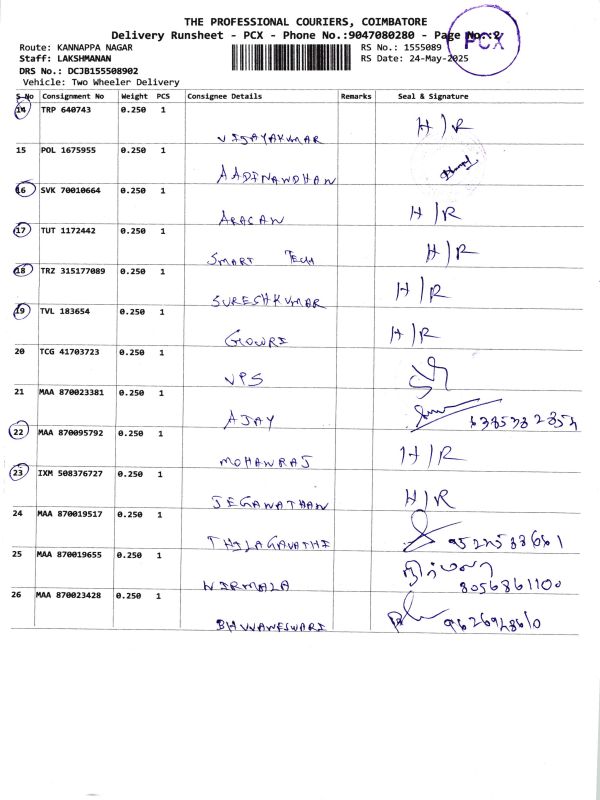 THE PROFESSIONAL COURIERS, COIMBATORE
Delivery Runsheet - PCX - Phone No.:9047080280 - Page No.:2
PCX
Route: KANNAPPA NAGAR RS No.: 1555089
Staff: LAKSHMANAN RS Date: 24-May-2025
DRS No.: DCJB155508902
Vehicle: Two Wheeler Delivery
S No Consignment No Weight PCS Consignee Details Remarks Seal & Signature
14 TRP 640743 0.250 1 H/R
VIJAYAKUMAR
15 POL 1675955 0.250 1
AADINANDHAN
16 SVK 70010664 0.250 1 H/R
ARAGAN
17 TUT 1172442 0.250 1 H/R
SMART TECH
18 TRZ 315177089 0.250 1 H/R
SURESHKUMAR
19 TVL 183654 0.250 1 H/R
GOWRI
20 TCG 41703723 0.250 1
VPS
21 MAA 870023381 0.250 1
AJAY
22 MAA 870095792 0.250 1 H/R
MOHANRAJ
23 IXM 508376727 0.250 1 H/R
JEGANATHAN
24 MAA 870019517 0.250 1
THILAGAVATHI
25 MAA 870019655 0.250 1 நிர்மலா
NIRMALA 8056861100
26 MAA 870023428 0.250 1
BHUVANESWARI